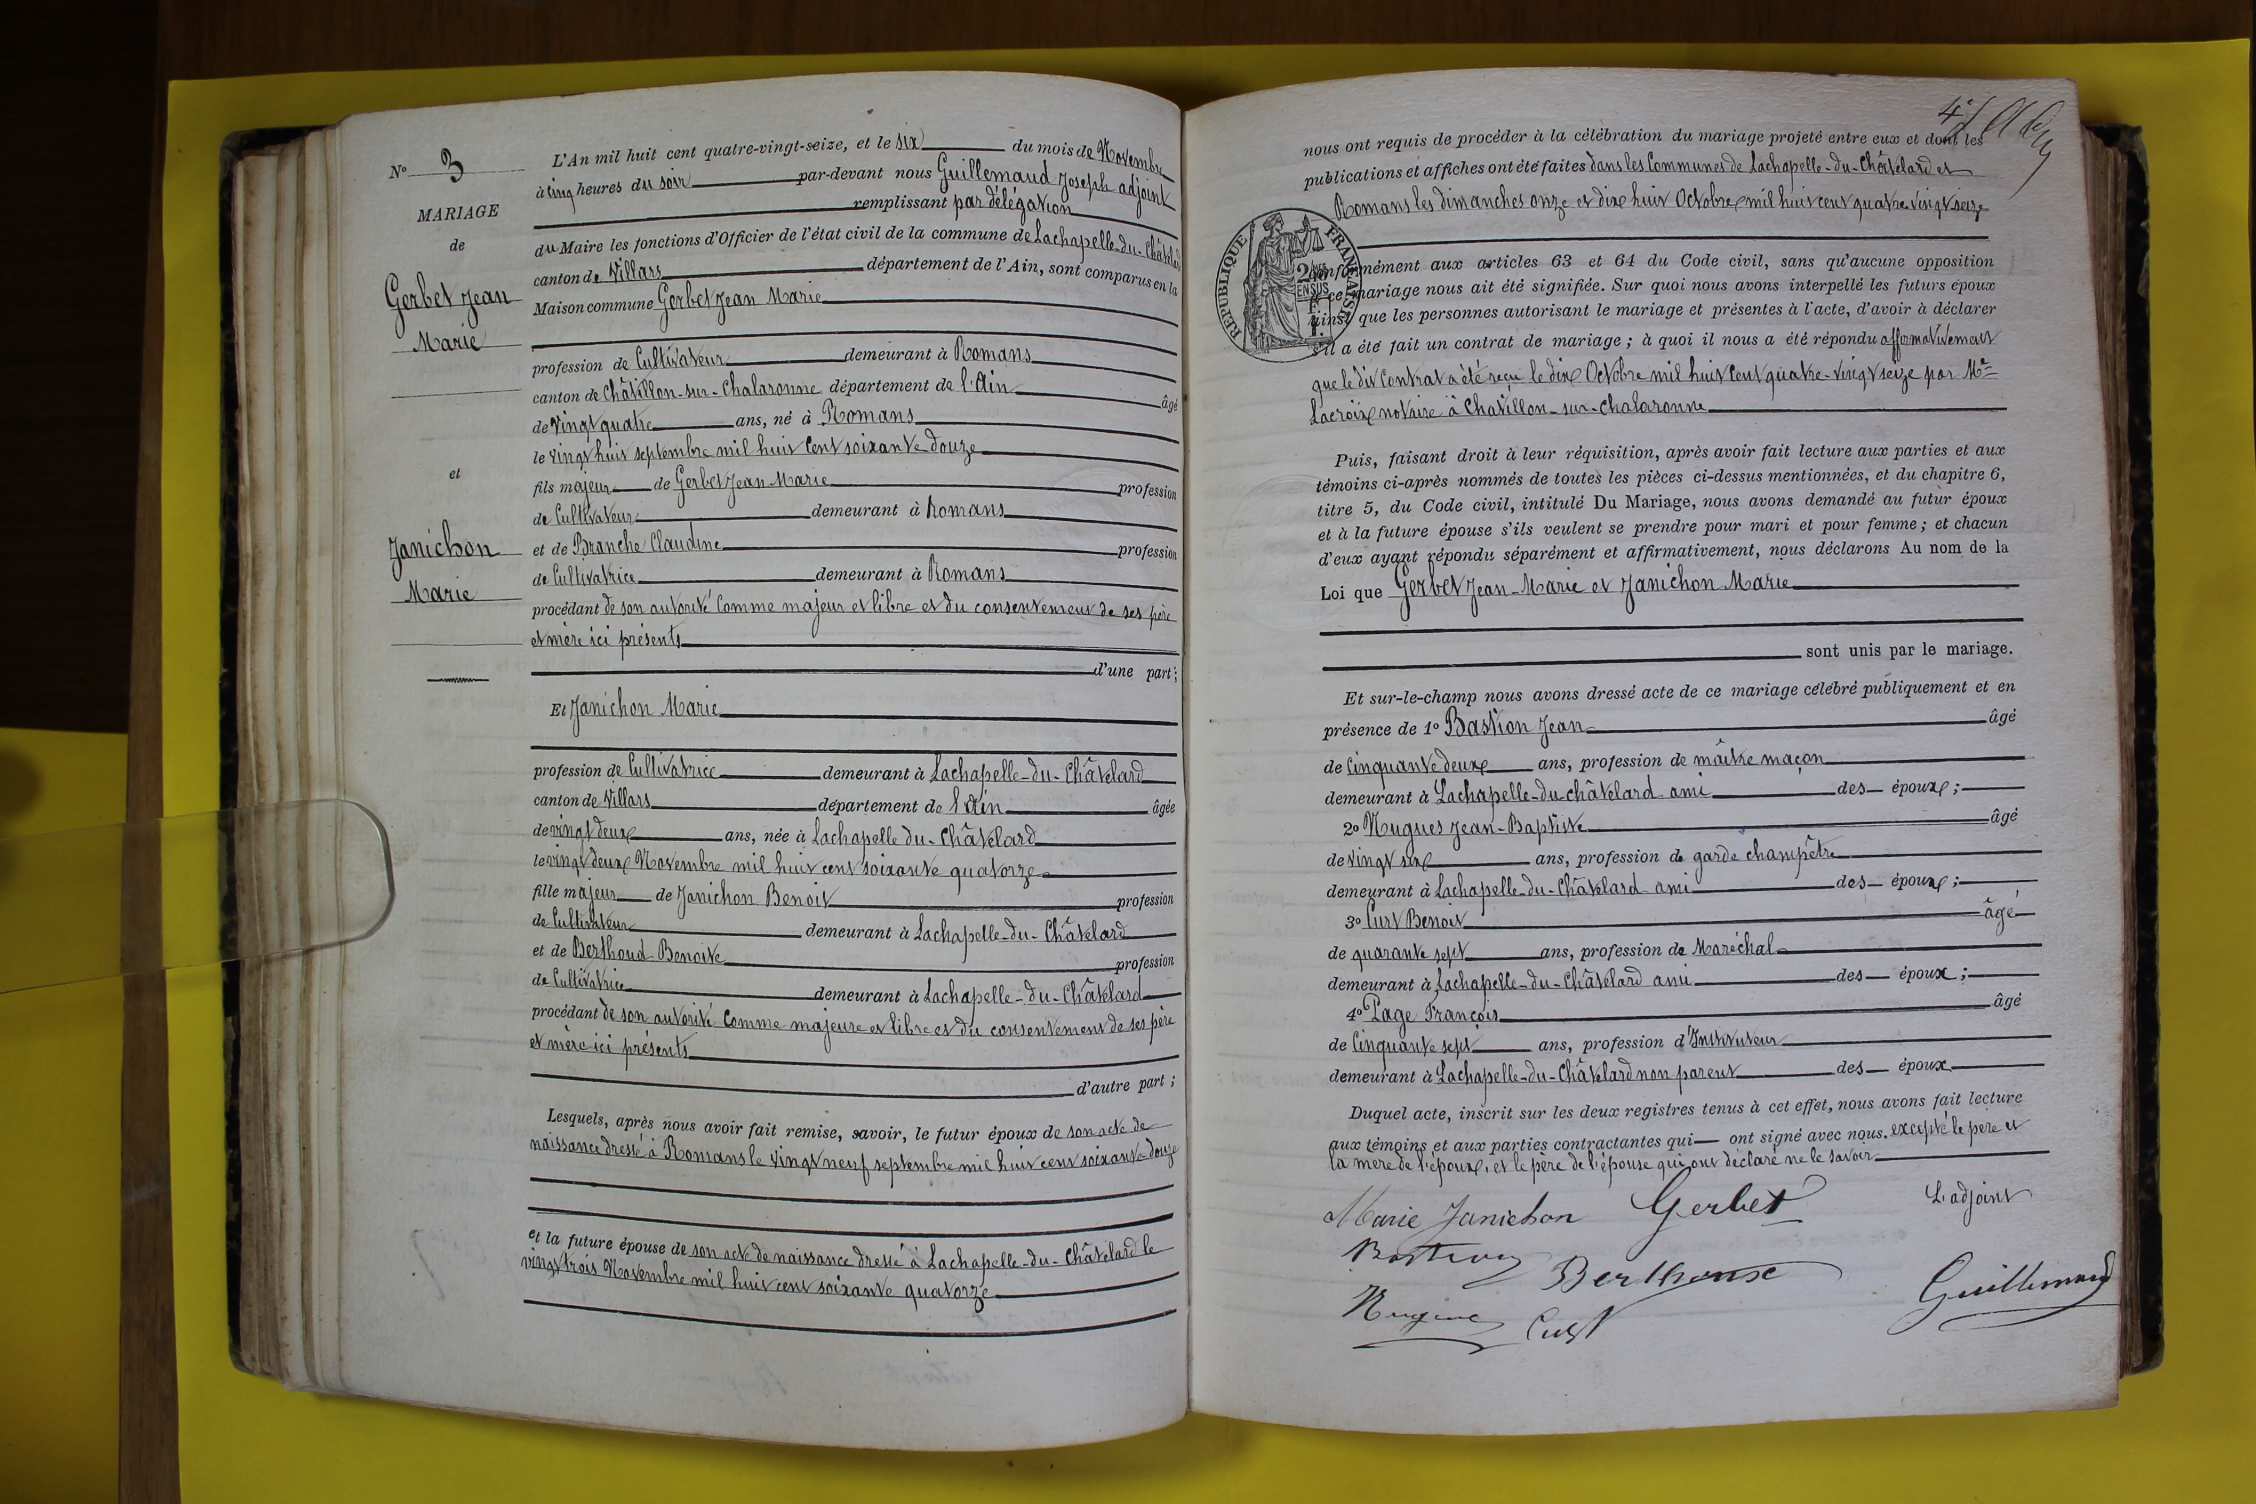 N° 3
MARIAGE
de
Gerbet Jean
Marie
et
Janichon
Marie
L'An mil huit cent quatre-vingt-seize, et le six du mois de Novembre
à cinq heures du soir par-devant nous Guillemaud Joseph adjoint
remplissant par délégation
du Maire les fonctions d'Officier de l'état civil de la commune de Lachapelle-du-Châtelard
canton de Villars département de l'Ain, sont comparus en la
Maison commune Gerbet Jean Marie
profession de Cultivateur demeurant à Romans
canton de Châtillon-sur-Chalaronne département de l'Ain âgé
de vingt quatre ans, né à Romans
le vingt huit septembre mil huit cent soixante douze
fils majeur de Gerbet Jean Marie profession
de Cultivateur demeurant à Romans
et de Branche Claudine profession
de Cultivatrice demeurant à Romans
procédant de son autorité comme majeur et libre et du consentement de ses père
et mère ici présents
d'une part;
Et Janichon Marie
profession de Cultivatrice demeurant à Lachapelle-du-Châtelard
canton de Villars département de l'Ain âgée
de vingt deux ans, née à Lachapelle du-Châtelard
le vingt deux Novembre mil huit cent soixante quatorze
fille majeur de Janichon Benoit profession
de Cultivateur demeurant à Lachapelle-du-Châtelard
et de Berthoud Benoite profession
de Cultivatrice demeurant à Lachapelle-du-Châtelard
procédant de son autorité comme majeure et libre et du consentement de ses père
et mère ici présents
d'autre part;
Lesquels, après nous avoir fait remise, savoir, le futur époux de son acte de
naissance dressé à Romans le vingt neuf septembre mil huit cent soixante-douze
et la future épouse de son acte de naissance dressé à Lachapelle-du-Châtelard le
vingt trois Novembre mil huit cent soixante quatorze
nous ont requis de procéder à la célébration du mariage projeté entre eux et dont les
publications et affiches ont été faites dans les Communes de Lachapelle-du-Châtelard et
Romans les dimanches onze et dix huit Octobre mil huit cent quatre vingt seize
RÉPUBLIQUE FRANÇAISE
conformément aux articles 63 et 64 du Code civil, sans qu'aucune opposition
à ce mariage nous ait été signifiée. Sur quoi nous avons interpellé les futurs époux
ainsi que les personnes autorisant le mariage et présentes à l'acte, d'avoir à déclarer
s'il a été fait un contrat de mariage; à quoi il nous a été répondu affirmativement
que le dit Contrat a été reçu le dix Octobre mil huit cent quatre-vingt seize par Me
Lacroix notaire à Châtillon-sur-Chalaronne
Puis, faisant droit à leur réquisition, après avoir fait lecture aux parties et aux
témoins ci-après nommés de toutes les pièces ci-dessus mentionnées, et du chapitre 6,
titre 5, du Code civil, intitulé Du Mariage, nous avons demandé au futur époux
et à la future épouse s'ils veulent se prendre pour mari et pour femme; et chacun
d'eux ayant répondu séparément et affirmativement, nous déclarons Au nom de la
Loi que Gerbet Jean-Marie et Janichon Marie
sont unis par le mariage.
Et sur-le-champ nous avons dressé acte de ce mariage célébré publiquement et en
présence de 1° Bastion Jean âgé
de Cinquante deux ans, profession de maître maçon
demeurant à Lachapelle-du-châtelard ami des époux;
2° Nugues Jean-Baptiste âgé
de vingt six ans, profession de garde champêtre
demeurant à Lachapelle-du-Châtelard ami des époux;
3° Curt Benoit âgé
de quarante sept ans, profession de Maréchal
demeurant à Lachapelle-du-Châtelard ami des époux;
4° Page François âgé
de Cinquante sept ans, profession d'Instituteur
demeurant à Lachapelle-du-Châtelard non parent des époux
Duquel acte, inscrit sur les deux registres tenus à cet effet, nous avons fait lecture
aux témoins et aux parties contractantes qui ont signé avec nous. excepté le père et
la mère de l'époux, et le père de l'épouse qui ont déclaré ne le savoir
Marie Janichon Gerbet L'adjoint
Bastion
Guillemaud
Curt